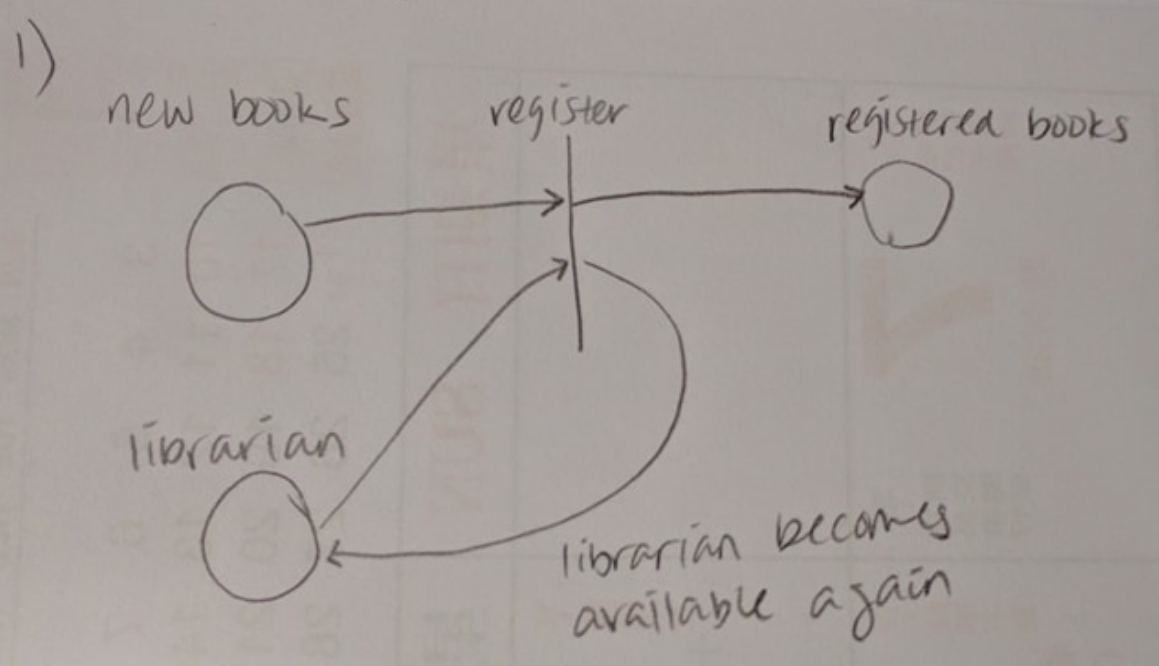 1)
new books
register
registered books
librarian
librarian becomes
available again